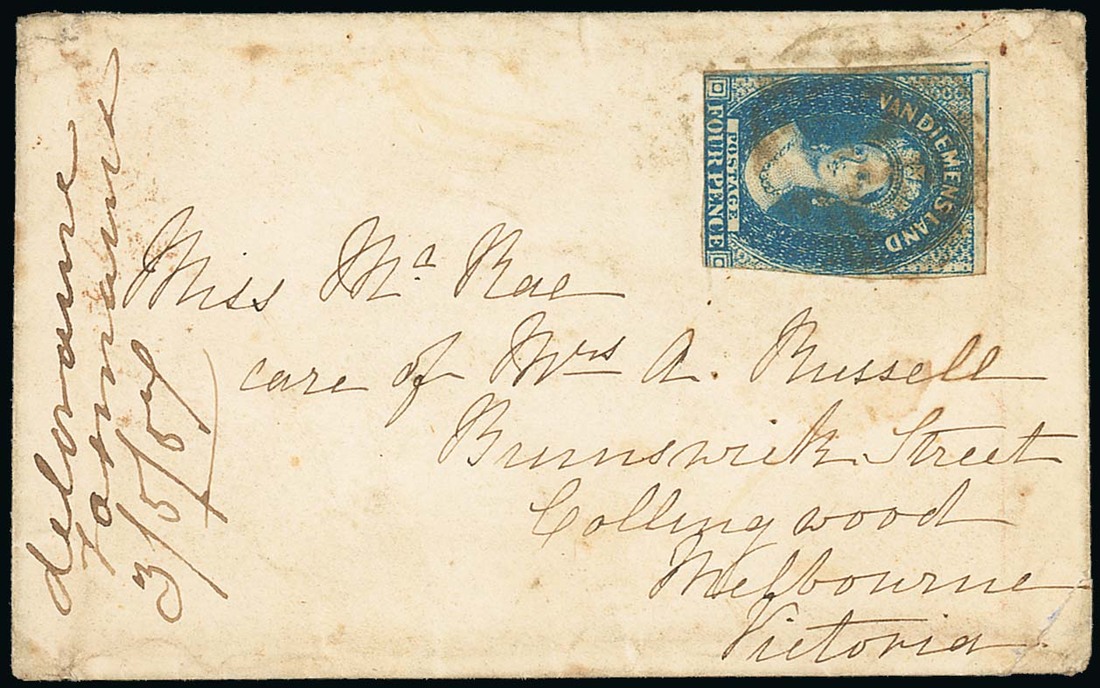 VAN DIEMENS LAND
POSTAGE
FOUR PENCE
Miss Mc Rae
care of Mrs A. Russell
Brunswick Street
Collingwood
Melbourne
Victoria
deloraine
Tasmania